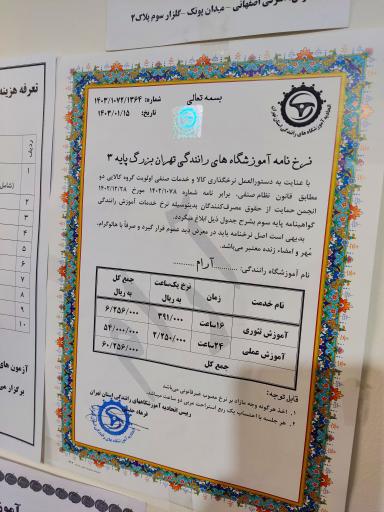 اصفهانی - میدان پونک - گلزار سوم پلاک۲
بسمه تعالی
شماره: ۱۴۰۳/۱۰۷۲/۱۳۶۴
تاریخ: ۱۴۰۳/۰۱/۱۵
نرخ نامه آموزشگاه های رانندگی تهران بزرگ پایه ۳
با عنایت به دستورالعمل نرخگذاری کالا و خدمات صنفی اولویت گروه کالایی دو
مطابق قانون نظام صنفی، برابر نامه شماره ۱۴۰۲/۱۰۷۸ مورخ ۱۴۰۲/۱۲/۲۸
انجمن حمایت از حقوق مصرف‌کنندگان بدینوسیله نرخ خدمات آموزش رانندگی
گواهینامه پایه سوم بشرح جدول ذیل ابلاغ میگردد.
بدیهی است اصل نرخنامه باید در معرض دید عموم قرار گیرد و صرفاً با هالوگرام،
مهر و امضاء زنده معتبر می‌باشد.
نام آموزشگاه رانندگی: ............آرام............
نام خدمت زمان نرخ یک‌ساعت به ریال جمع کل به ریال
آموزش تئوری ۱۶ساعت ۳۹۱/۰۰۰ ۶/۲۵۶/۰۰۰
آموزش عملی ۲۴ساعت ۲/۲۵۰/۰۰۰ ۵۴/۰۰۰/۰۰۰
جمع کل ۶۰/۲۵۶/۰۰۰
قابل توجه:
۱. اخذ هرگونه وجه مازاد بر نرخ مصوب غیرقانونی می‌باشد
۲. هر جلسه با احتساب یک ربع استراحت مربی دو ساعت میباشد.
رییس اتحادیه آموزشگاههای رانندگی استان تهران
تعرفه هزینه
ردیف
۱
۲
۳
۴
۵
۶
۷
۸
۹
۱۰
آزمون های
برگزار می